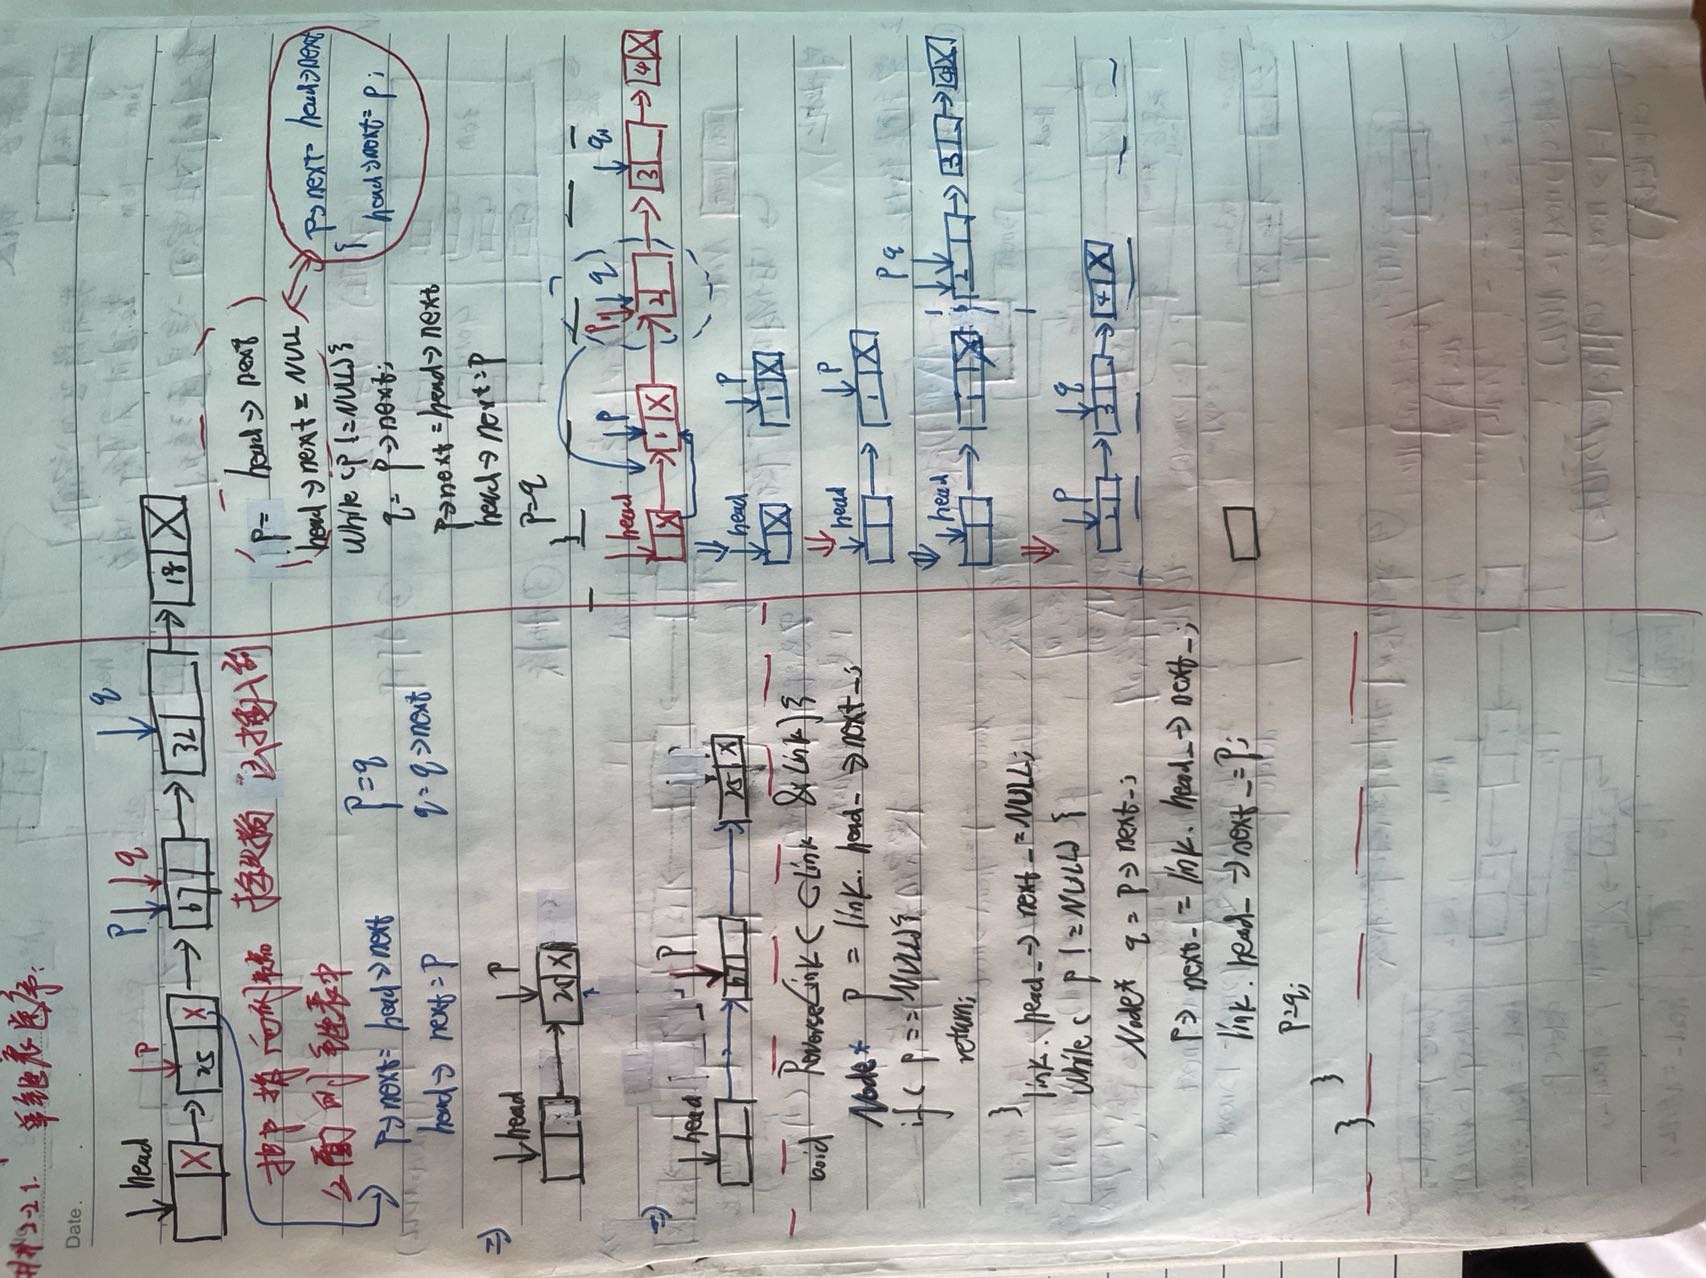 ##2-2 1. 单链表逆序:
Date.
head p p q q
25 67 32 18
把p指向的节点
的单链表中
p->next = head->next
head->next = p
p = q
q = q->next
=>
head p
25
=>
head p
67 25
void ReverseLink( CLink &link){
Node* p = link. head_ -> next_;
if( p == NULL){
return;
}
link. head_ -> next_ = NULL;
while( p != NULL) {
Node* q = p -> next_;
p -> next_ = link. head_ -> next_;
link. head_ -> next_ = p;
p = q;
}
}
p = head -> next
head -> next = NULL
while (p != NULL){
q = p -> next;
p->next = head -> next
head -> next = p
p = q
}
p->next = head->next
{
head->next = p;
head p p q q
1 2 3 4
head p
1
head p
1
head p q
1 2 3 4
p q
2 3 4